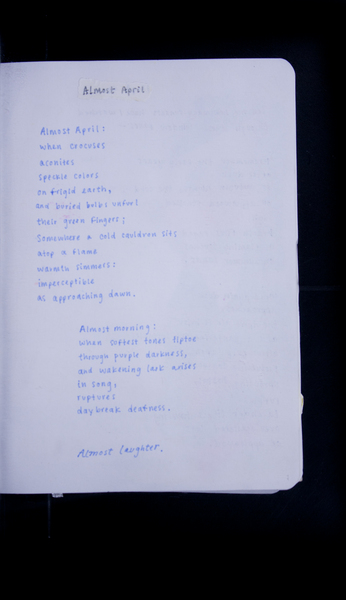 Almost April
Almost April:
when crocuses
aconites
speckle colors
on frigid earth,
and buried bulbs unfurl
their green fingers;
Somewhere a cold cauldron sits
atop a flame
warmth simmers:
imperceptible
as approaching dawn.
Almost morning:
when softest tones tiptoe
through purple darkness,
and wakening lark arises
in song,
ruptures
daybreak deafness.
Almost laughter.